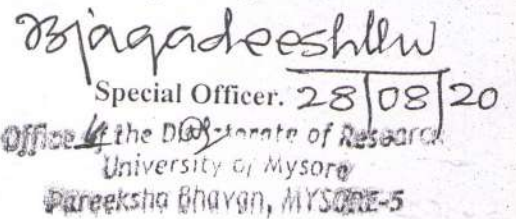 Bjagadeesh
Special Officer. 28/08/20
Office of the Directorate of Research
University of Mysore
Pareeksha Bhavan, MYSORE-5